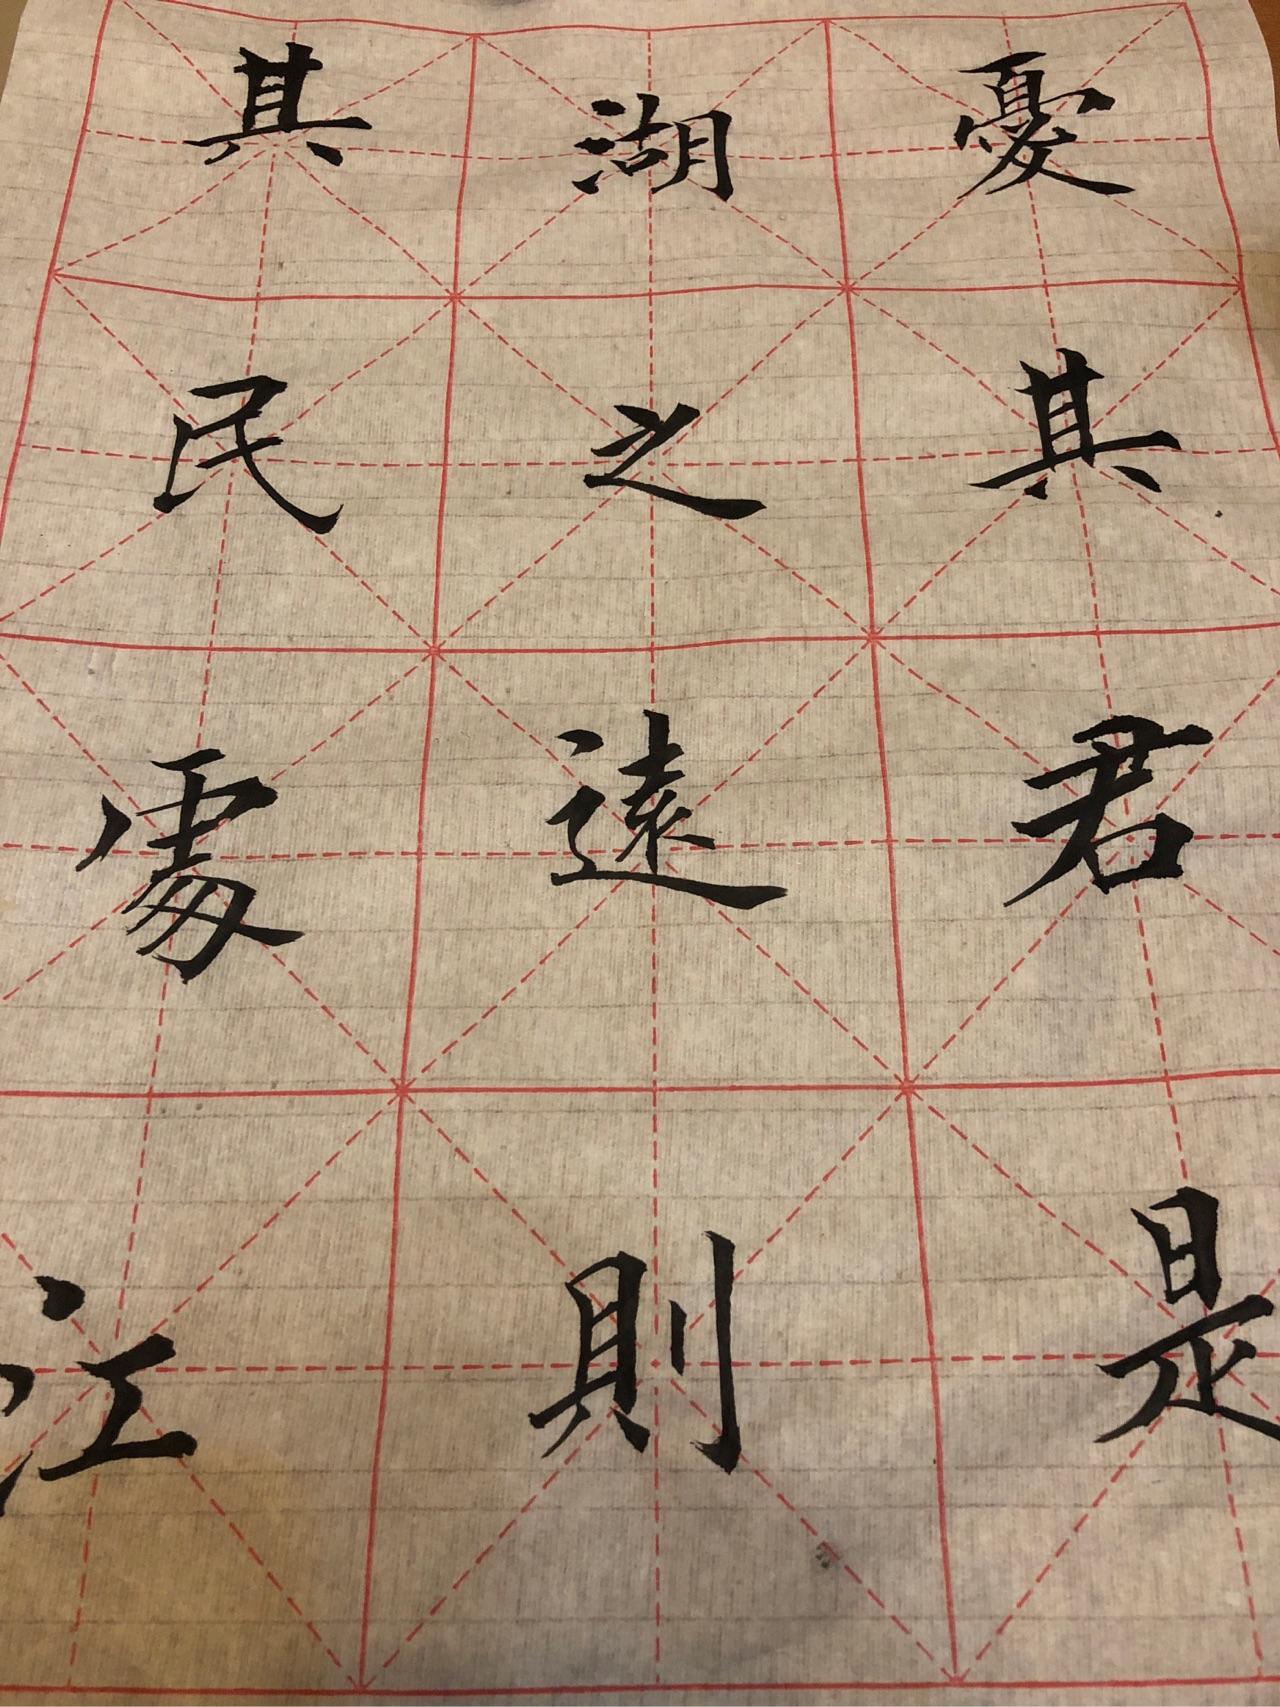 其民處江
湖之遠則
憂其君是